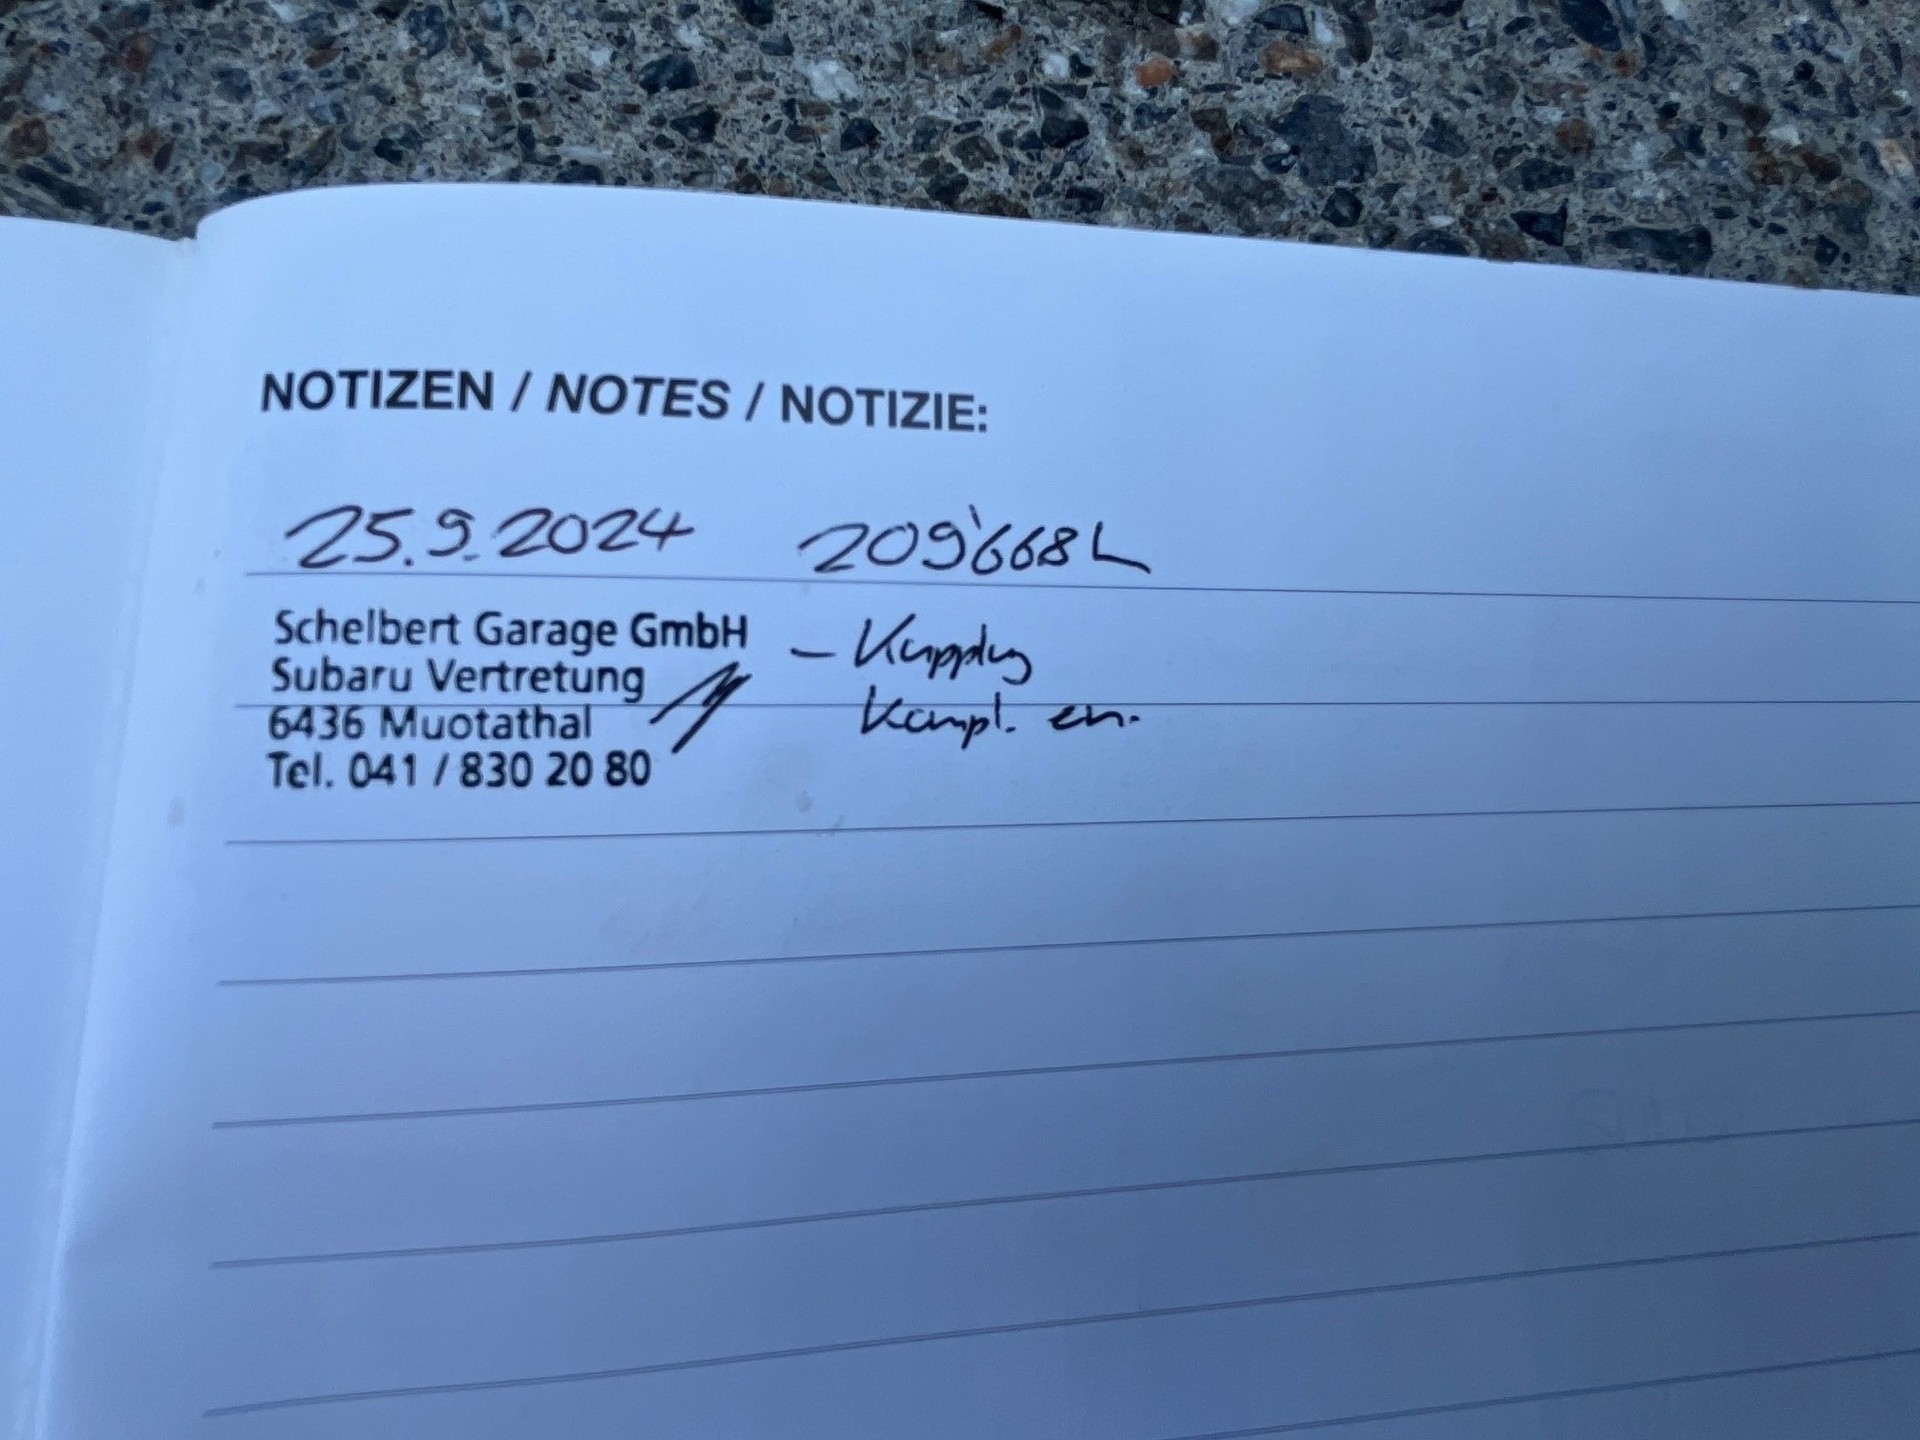 NOTIZEN / NOTES / NOTIZIE:
25.9.2024 209'668 h
Schelbert Garage GmbH
Subaru Vertretung
6436 Muotathal
Tel. 041 / 830 20 80
- Kupplung
Kompl. en.